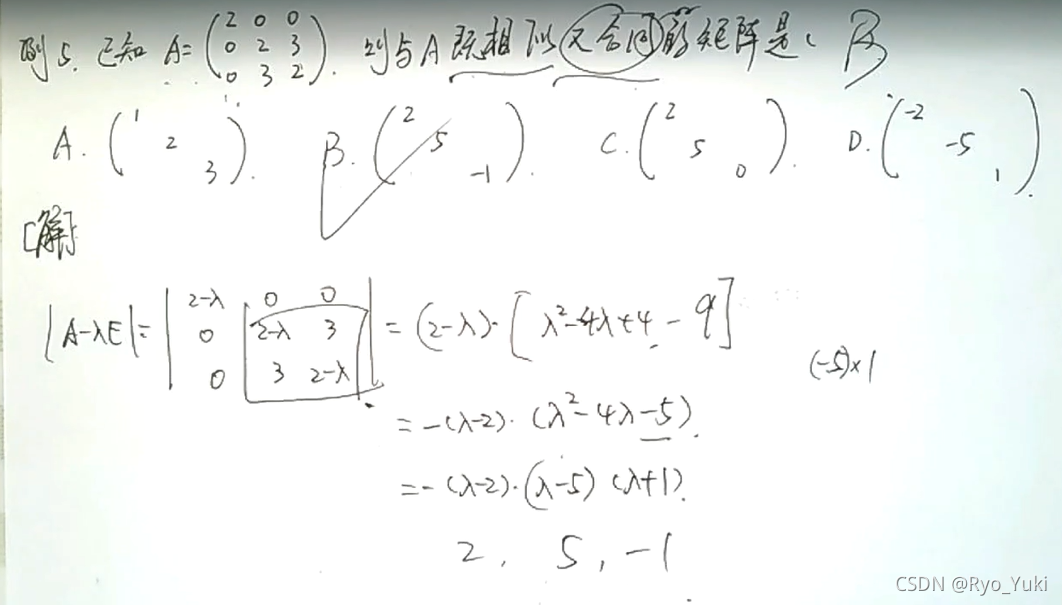 例5. 已知 A=(2 0 0 0 2 3 0 3 2). 则与A既相似又合同的矩阵是( B
A. (1 2 3). B. (2 5 -1). C. (2 5 0). D. (-2 -5 1).
[解]:
|A-λE|=|2-λ 0 0 0 2-λ 3 0 3 2-λ| = (2-λ)·[λ²-4λ+4-9]
(-5)×1
=-(λ-2)·(λ²-4λ-5).
=-(λ-2)·(λ-5)(λ+1).
2, 5, -1
CSDN @Ryo_Yuki